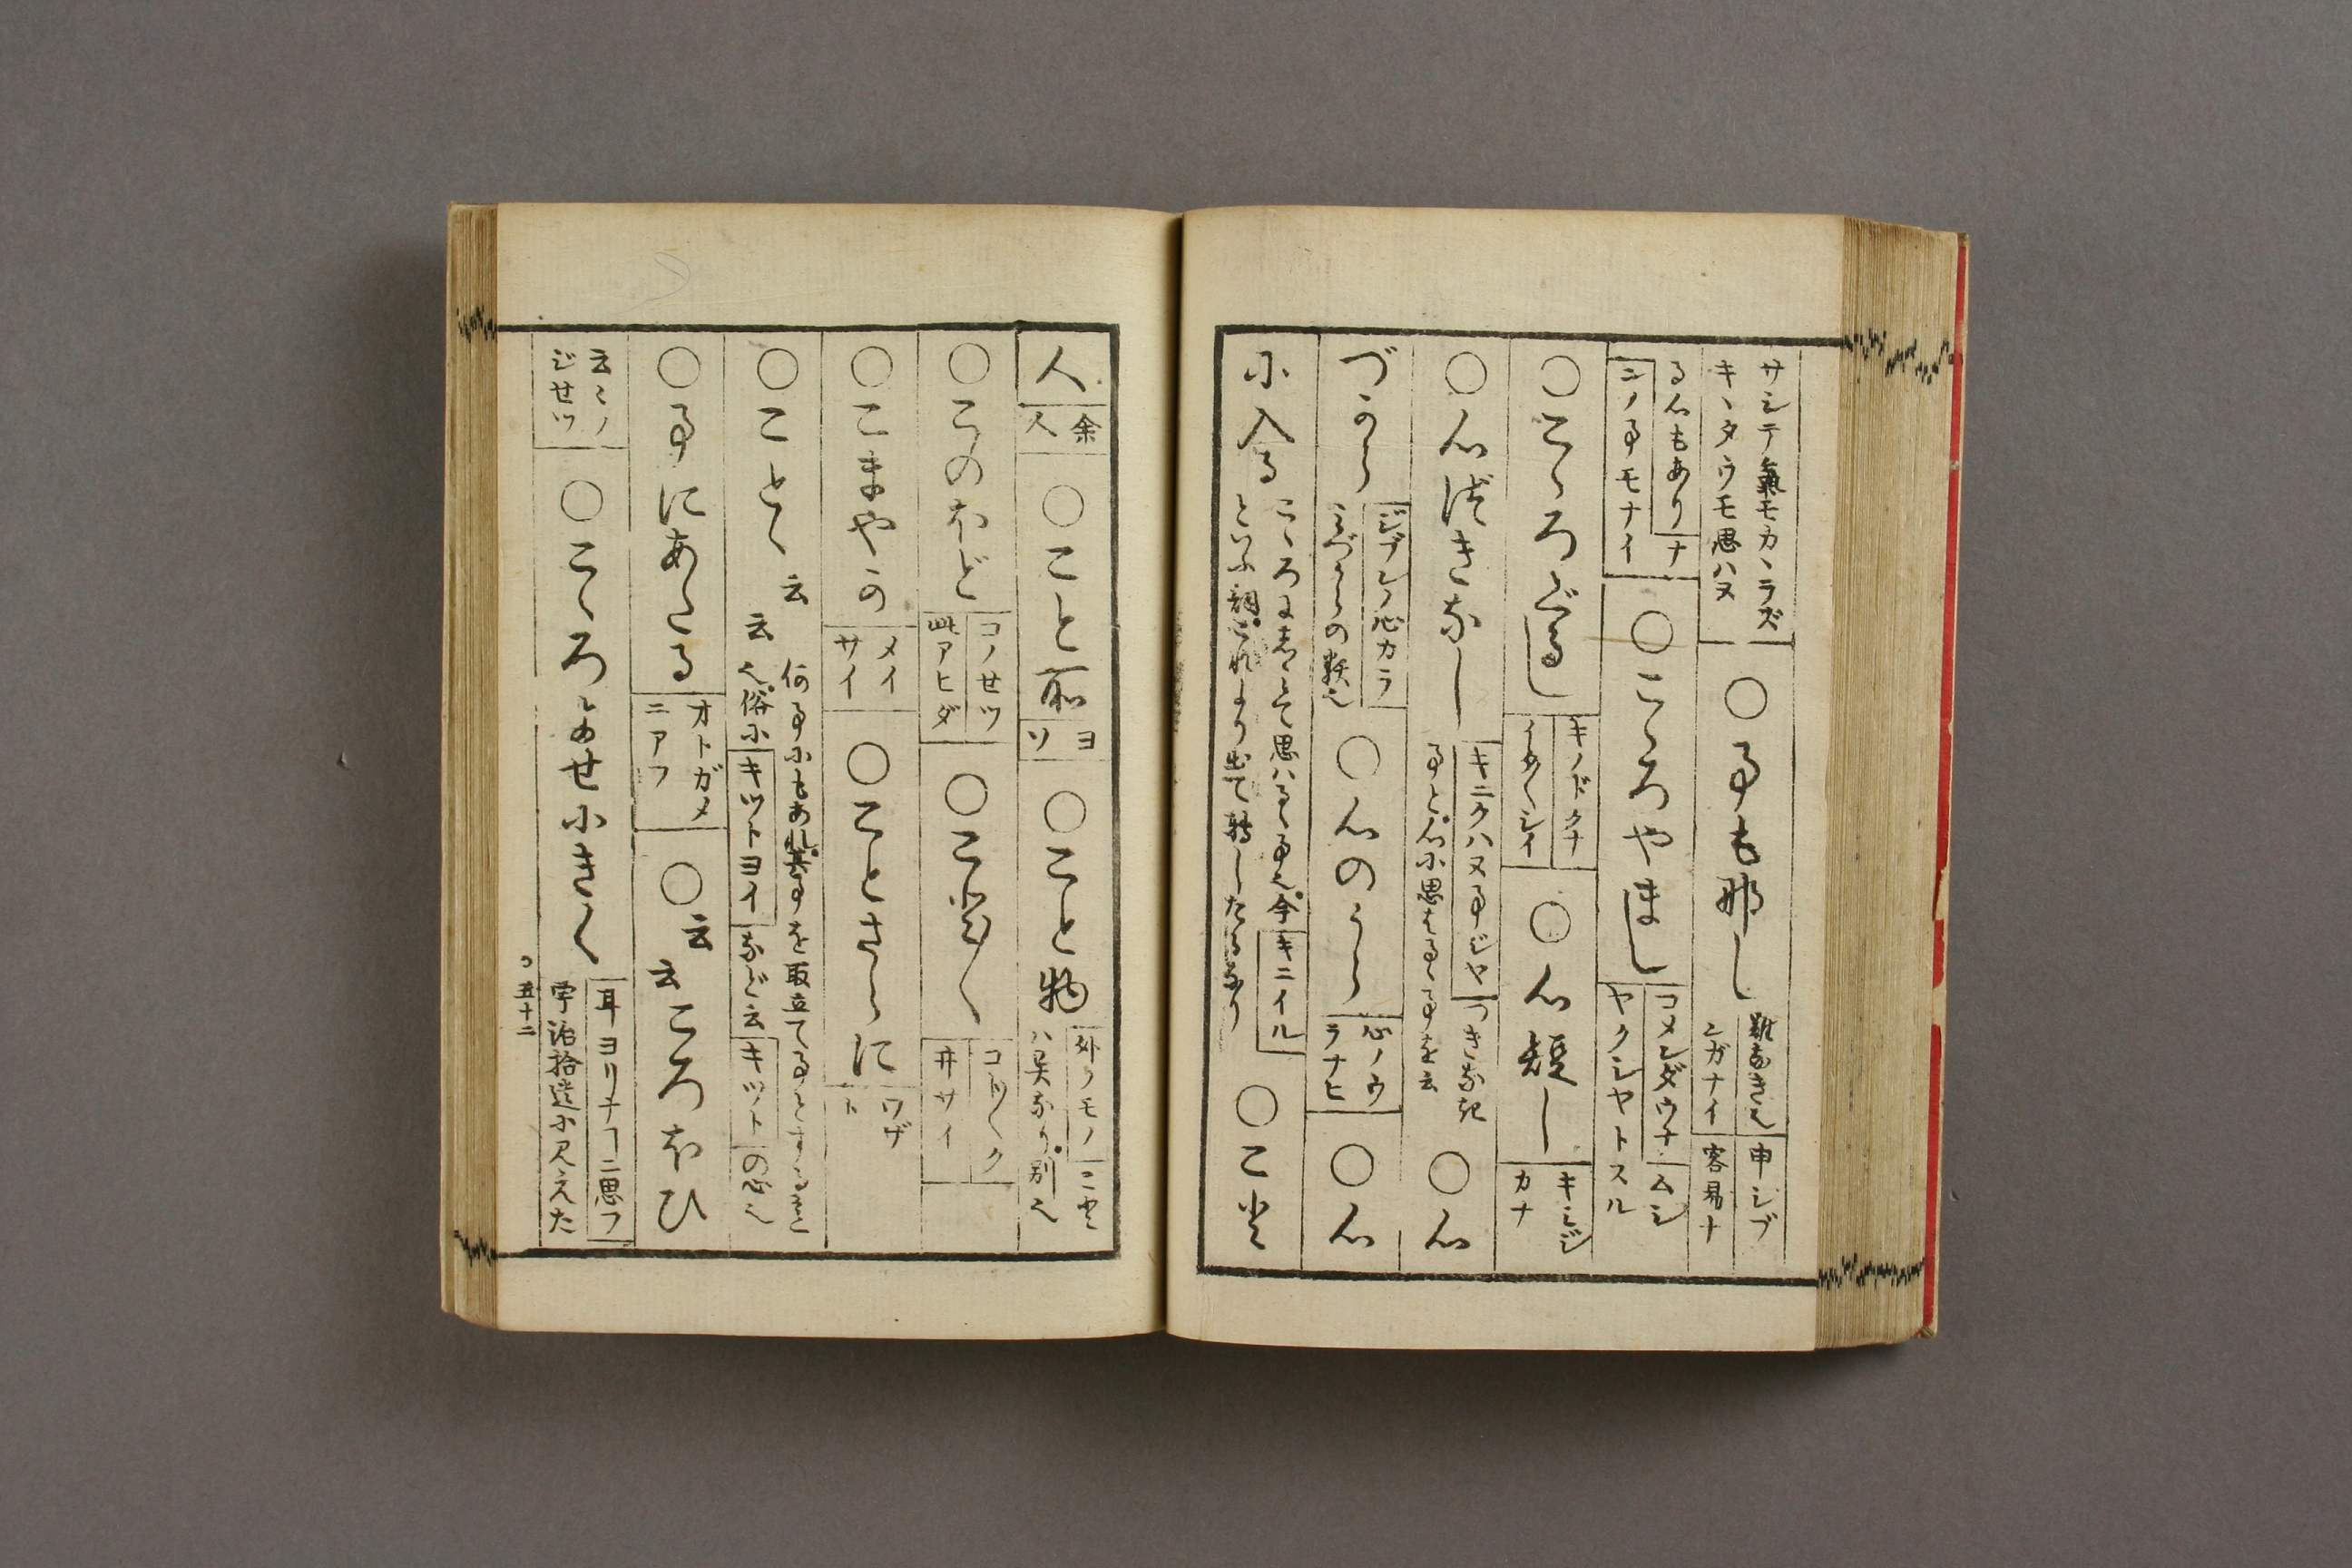 サシテ氣モカヽラズ
キヽタウモ思ハヌ
○事も那し
難なき也
シガナイ
申シブ
客易ナ
る心もあり
ナ
ンノ事モナイ
○こゝろやまし
コメンダウナ
ムシ
ヤクシヤトスル
○こゝろぐるし
キノドクナ
○心短し
キミジ
カナ
○心づきなし
キニクハヌ事ジヤ
つきなき
事と心に思はるゝ事を云
○心
づから
ジブンノ心カラ
みづからの類也
○心のうら
心ノウ
ラナヒ
○心
に入る
こゝろにしみて思はるゝ事也今
キニイル
といふ詞これより出て轉したるなり
○こと
人
余
人
○こと所
ヨ
ソ
○こと物
外ノモノ
こと
ハ異なり別也
○このほど
コノせツ
此アヒダ
○こと〴〵く
コト〴〵ク
井サイ
○こまやか
メイ
サイ
○ことさらに
ワザ
ト
○こと〻云云
何事にもあれ其事を取立てる
也俗に
キツトヨイ
など云
キツト
の心也
○事にあたる
オトガメ
ニアフ
○云云ころほひ
云云ノ
ジせツ
○こゝろあせにきく
耳ヨリナコニ思フ
宇治拾遺に見えた
コ 五十二